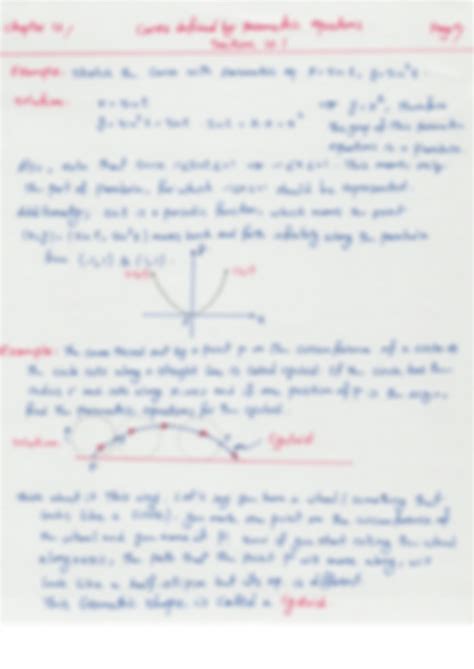 Chapter 10/ Curves defined by parametric equations Page 9
Section 10.1
Example: Sketch the curve with parametric eq x = sin t, y = sin² t.
Solution: x = sin t => y = x², therefore
y = sin² t = sin t · sin t = x · x = x² the graph of this parametric
equations is a parabola.
Also, note that since -1≤sin t≤1 => -1≤x≤1. This means only
the part of parabola, for which -1≤x≤1 should be represented.
Additionally, sin t is a periodic function, which means the point
(x,y) = (sin t, sin² t) moves back and forth infinitely along the parabola
from (-1,1) to (1,1).
(-1,1) (1,1)
Example: The curve traced out by a point P on the circumference of a circle as
the circle rolls along a straight line is called cycloid. If the circle has the
radius r and rolls along x-axis and if one position of P is the origin,
find the parametric equations for the cycloid.
Solution: P Cycloid
P
Think about it this way. Let's say you have a wheel (something that
looks like a circle). you mark one point on the circumference of
the wheel and you name it P. Now if you start rolling the wheel
along x-axis, the path that the point P will move along, will
look like a half-ellipse but its eq. is different.
This Geometric shape is called a Cycloid.